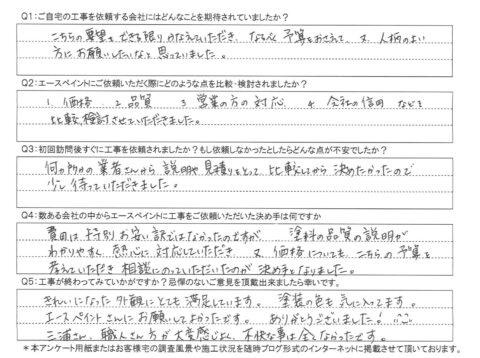 Q1:ご自宅の工事を依頼する会社にはどんなことを期待されていましたか？
こちらの要望をできる限りかなえていただき、なるべく予算をおさえて、又、人柄のよい
方にお願いしたいなと思っていました。
Q2:エースペイントにご依頼いただく際にどのような点を比較・検討されましたか？
1. 価格 2. 品質 3 営業の方の対応 4 会社の信用 などを
比較、検討させていただきました。
Q3:初回訪問後すぐに工事を依頼されましたか？もし依頼しなかったとしたらどんな点が不安でしたか？
何か所かの業者さんから説明や見積りをとって、比較してから決めたかったので
少し待っていただきました。
Q4:数ある会社の中からエースペイントに工事をご依頼いただいた決め手は何ですか
費用は特別お安い訳ではなかったのですが、塗料の品質の説明が
わかりやすく、熱心に対応していただき、又、価格についても、こちらの予算を
考えていただき相談にのっていただいたのが決め手となりました。
Q5:工事が終わってみていかがですか？忌憚のないご意見を頂戴出来ましたら幸いです。
きれいになった外観にとても満足しています。塗装の色も気に入ってます。
エースペイントさんにお願いしてよかったです。ありがとうございました!
三浦さん、職人さん方が大変感じよく、不快な事は全くなかったです。
*本アンケート用紙またはお客様宅の調査風景や施工状況を随時ブログ形式のインターネットに掲載させて頂いております。